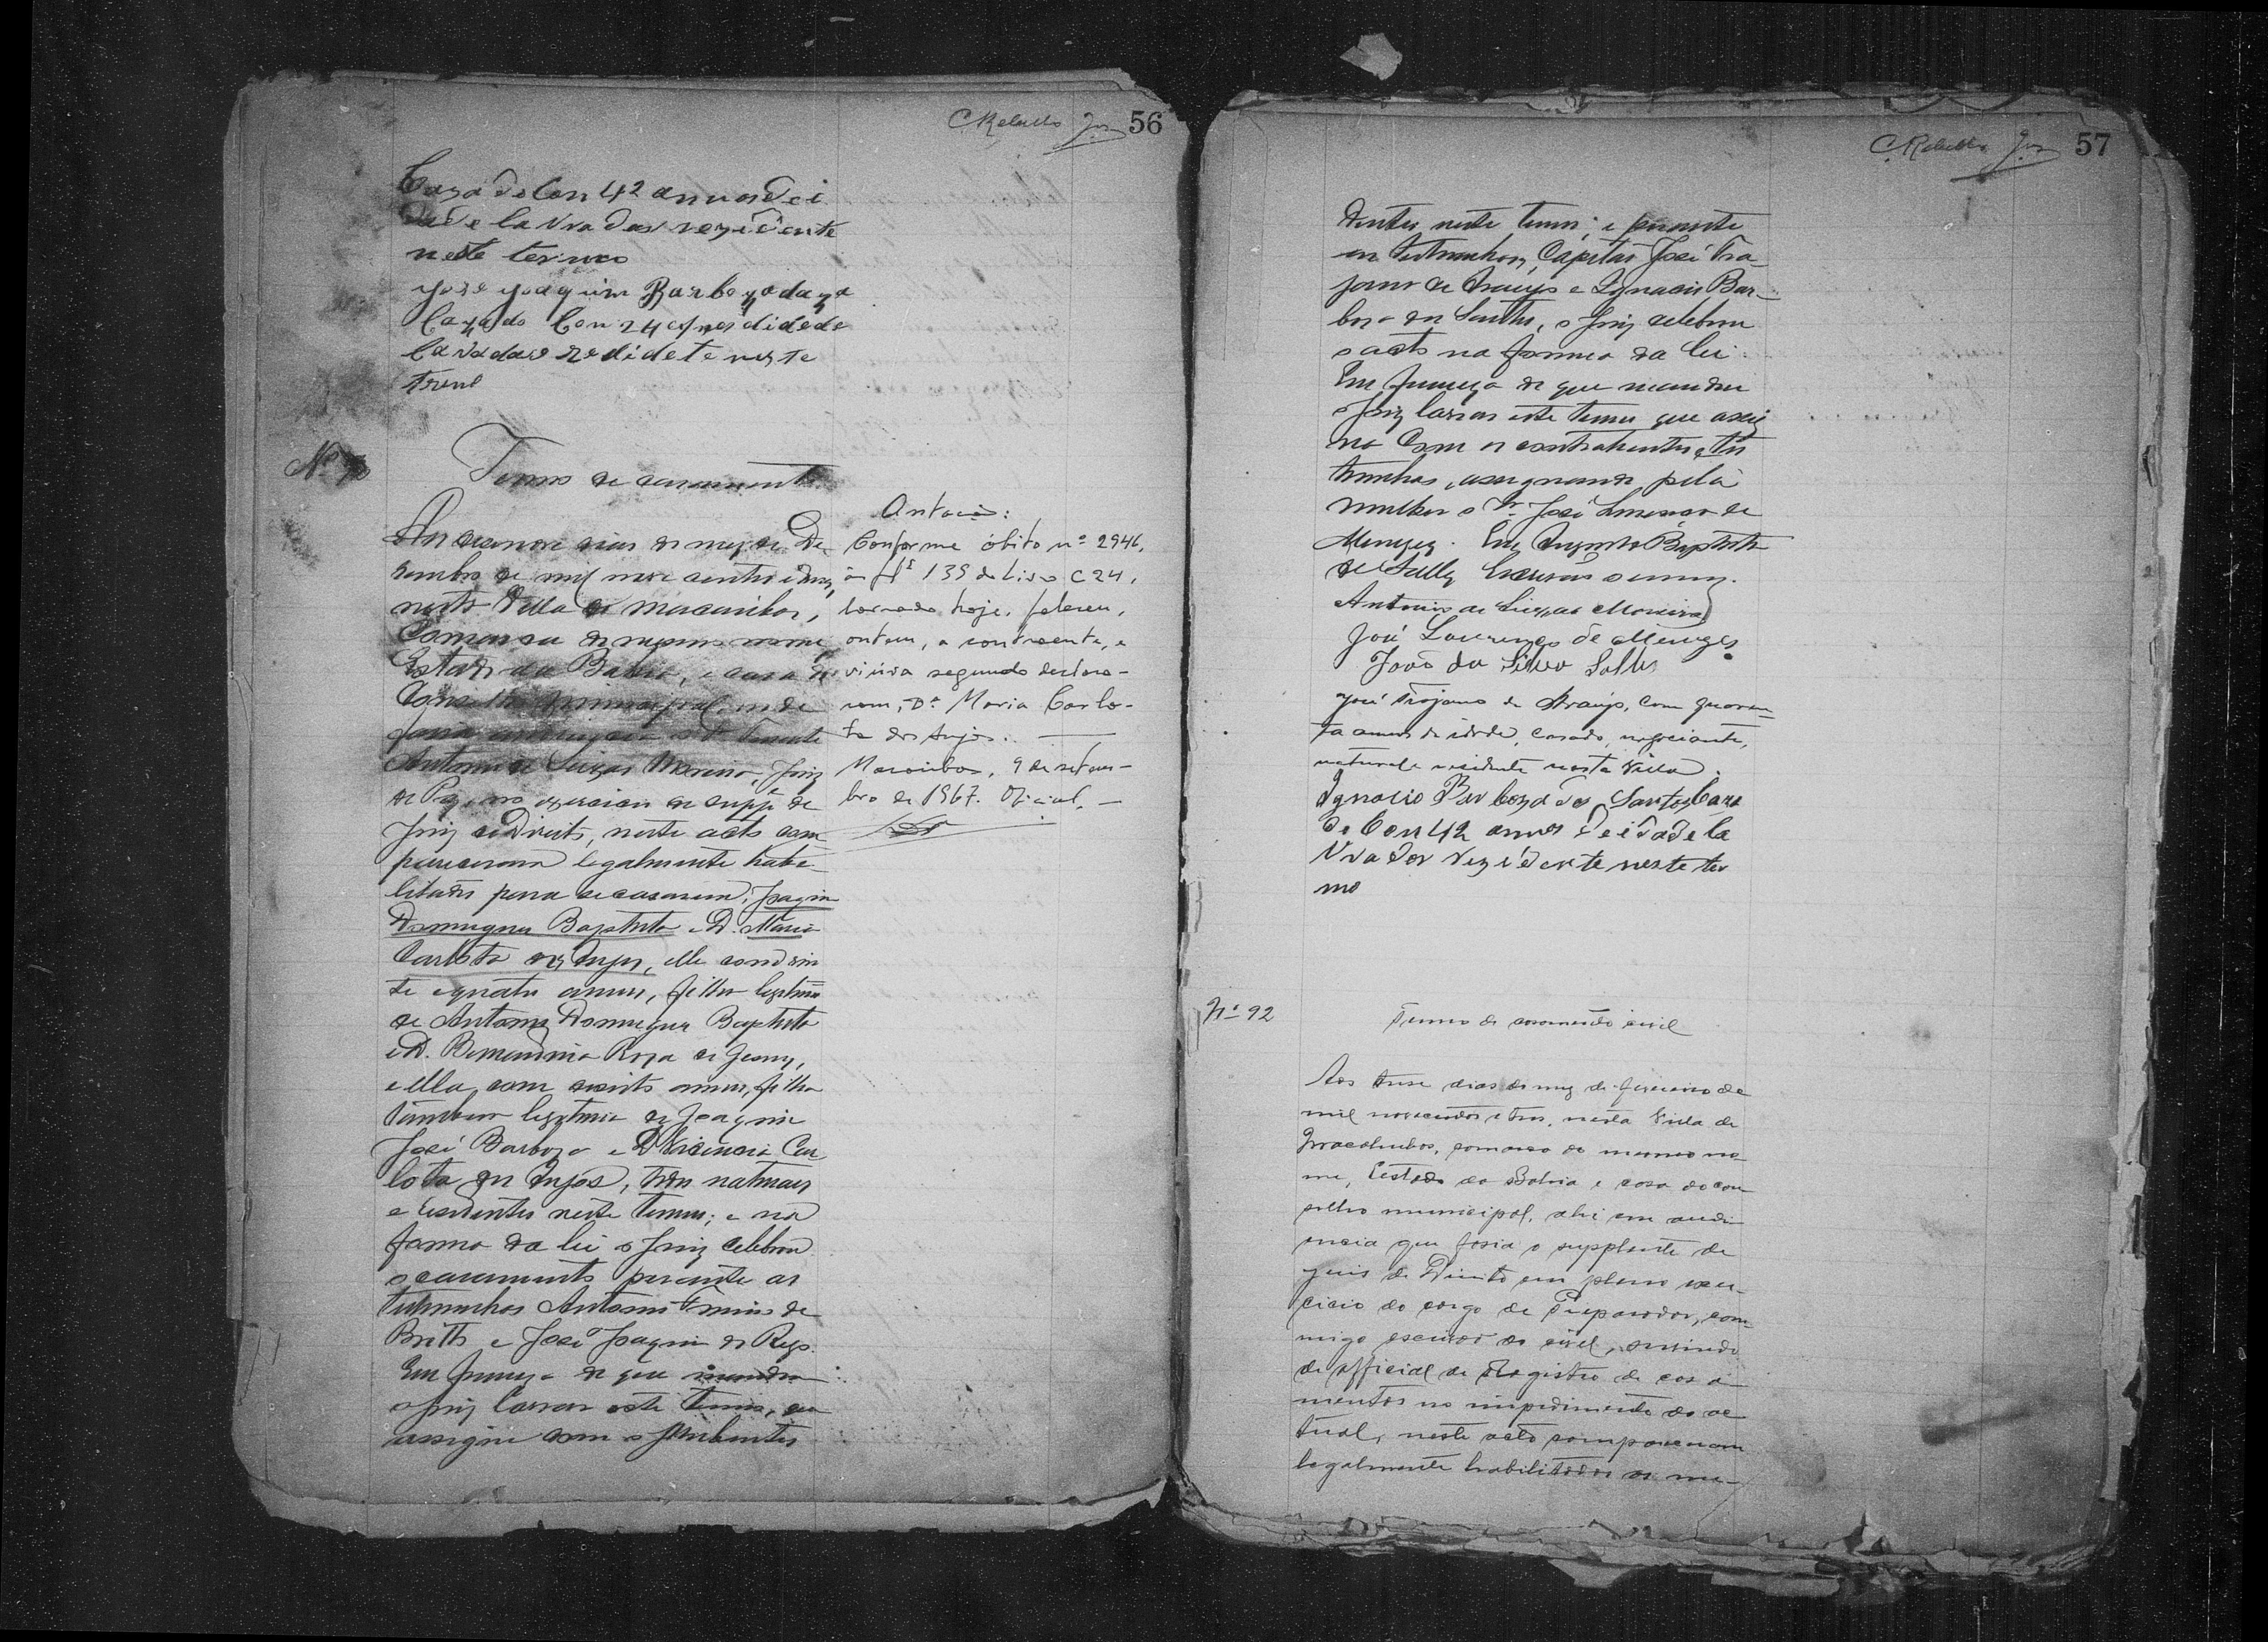 C. Rebello Jor 56
Caza do Con 42 annos dei
dade lavrador rezidente
neste termo
Jose Joaquim Barboza
Cazado Con 24 annos didade
lavador rezidete neste
Nº
Termo de casamento
Aos dezenove dias do mez de De
sembro de mil nove centos e dous,
nesta Villa de Macaubas,
Comarca do mesmo nome
Estado da Bahia, e casa do
Conselho Municipal, onde
o Tenente
Antonio de Souza Moreira, Juiz
de Paz, no exercicio de suppe de
Juiz de Direito, neste acto com
pareceram legalmente habe
litados para secasarem, Joaquim
Domingues Baptista e D. Maria
Carlota dos Anjos, elle com vin
te e quatro annos, filho legitimo
de Antonio Domingues Baptista
e D. Bernardina Roza de Jesus,
e ella, com annos, filha
tambem legitima de Joaquim
José Barboza e D. Vicencia Car
lota dos Anjos, todos naturaes
e residentes neste termo; e na
forma da lei o Juiz celebrou
o casamento perante as
tistimunhas Antonio de
Britto e José Joaquim do Rego.
Em firmeza de que mandou
o Juiz lavrar este termo, que
assigna com o
Antação:
Conforme óbito nº 2946,
às fls 139 do livro C 24,
lavrado hoje, faleceu,
ontem, a contraente, e
viúva segundo declara-
ram, Dª. Maria Carlo-
ta dos Anjos.
Macaúbas, 9 de setem-
bro de 1967. Oficial,
C. Rebello Jor 57
dentes neste termo; e perante
as tistimunhas, Capitão José Tra
jano de Araujo e Ignacio Bar-
boza dos Santos, o Juiz celebrou
o acto na forma da lei.
Em firmeza de que mandou
o Juiz lavrar este termo que assig
na com os contrahentes e tis
timunhas, assignando pela
mulher o Sr. José Lourenço de
Menezes. Eu, Augusto Baptista
de Salles Escrivão o escrevi.
Antonio de Souza Moreira
José Lourenço de Menezes
João da Silva Salles
José Trajano de Araujo, com quaren
ta annos de idade, casado, negociante,
natural e residente nesta Villa.
Ignacio Barboza dos Santos Caza
do Con 42 annos de idade la
vrador rezidente neste ter
mo
Nº 92
Termo de casamento civil
Aos treze dias do mez de Janeiro de
mil novecentos e tres, nesta Villa de
Macahubas, comarca do mesmo no-
me, Estado da Bahia e casa do con
selho municipal, ahi em audi
encia que fasia o supplente de
juis de Direito em pleno exer-
cicio do cargo de Preparador, com-
migo escrivão do civel, servindo
de official de Registro de casa
mentos no impedimento do ac
tual, neste acto compareceram
legalmente habilitados os nu-